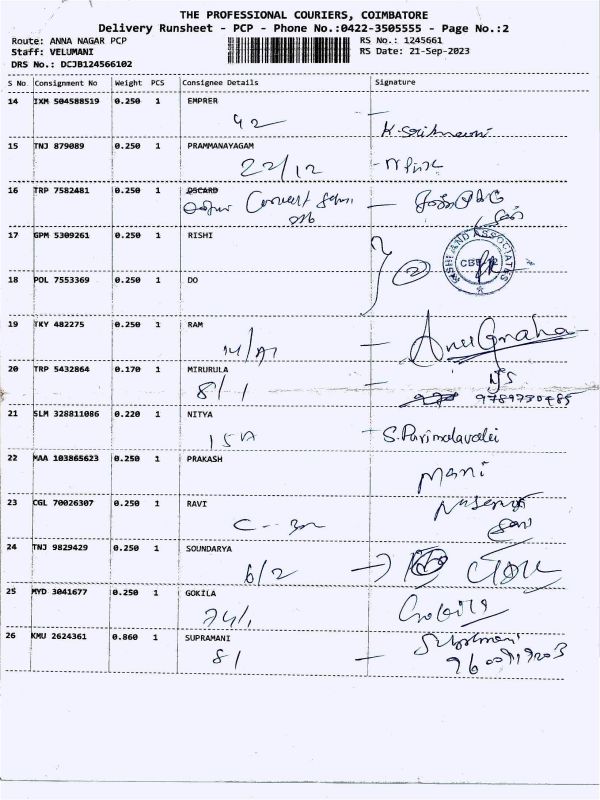 THE PROFESSIONAL COURIERS, COIMBATORE
Delivery Runsheet - PCP - Phone No.:0422-3505555 - Page No.:2
Route: ANNA NAGAR PCP RS No.: 1245661
Staff: VELUMANI RS Date: 21-Sep-2023
DRS No.: DCJB124566102
S No Consignment No Weight PCS Consignee Details Signature
14 IXM 504588519 0.250 1 EMPRER
42
15 TNJ 879089 0.250 1 PRAMMANAYAGAM
22/12
16 TRP 7582481 0.250 1 OSCARD
Convent
17 GPM 5309261 0.250 1 RISHI
RISHI AND ASSOCIATES
CBE
2
18 POL 7553369 0.250 1 DO
19 TKY 482275 0.250 1 RAM
Anugraha
20 TRP 5432864 0.170 1 MIRURULA
8/-1
9789730485
21 SLM 328811086 0.220 1 NITYA
15A S.Parimalavalli
22 MAA 103865623 0.250 1 PRAKASH
Mani
23 CGL 70026307 0.250 1 RAVI
24 TNJ 9829429 0.250 1 SOUNDARYA
6/2
25 MYD 3041677 0.250 1 GOKILA
74/1 Gokila
26 KMU 2624361 0.860 1 SUPRAMANI
8/